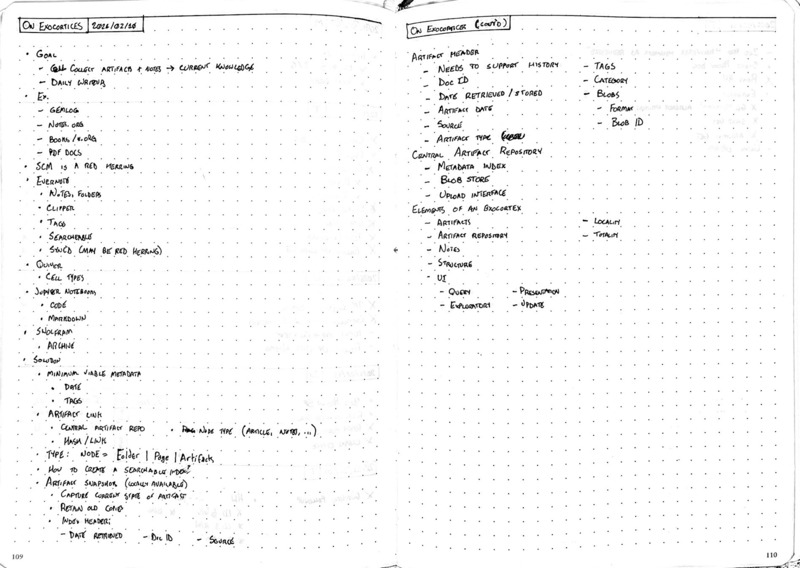 ON EXOCORTICES
- GOAL
- COLLECT ARTIFACTS + NOTES → CURRENT KNOWLEDGE
- DAILY
- EX.
- GEMLOG
- NOTES.ORG
- BOOKS/*.ORG
- PDF DOCS
- SCM IS A RED HERRING
- EVERNOTE
- NOTES, FOLDERS
- CLIPPER
- TAGS
- SEARCHABLE
- SYNC'D (MAY BE RED HERRING)
- QUIVER
- CELL TYPES
- JUPYTER NOTEBOOKS
- CODE
- MARKDOWN
- SWOLFRAM
- ARCHIVE
- SOLUTION
- MINIMUM VIABLE METADATA
- DATE
- TAGS
- ARTIFACT LINK
- CENTRAL ARTIFACT REPO - NODE TYPE (ARTICLE, NOTES, ...)
- HASH/LINK
- TYPE: NODE = Folder | Page | Artifacts
- HOW TO CREATE A SEARCHABLE INDEX?
- ARTIFACT SNAPSHOR (LOCALLY AVAILABLE)
- CAPTURE CURRENT STATE OF ARTIFACT
- RETAIN OLD COPIES
- INDEX HEADER:
- DATE RETRIEVED - DOC ID - SOURCE
109
ON EXOCORTICES (CONT'D)
ARTIFACT HEADER
- NEEDS TO SUPPORT HISTORY
- DOC ID
- DATE RETRIEVED/STORED
- ARTIFACT DATE
- SOURCE
- ARTIFACT TYPE
- TAGS
- CATEGORY
- BLOBS
- FORMAT
- BLOB ID
CENTRAL ARTIFACT REPOSITORY
- METADATA INDEX
- BLOB STORE
- UPLOAD INTERFACE
ELEMENTS OF AN EXOCORTEX
- ARTIFACTS
- ARTIFACT REPOSITORY
- NOTES
- STRUCTURE
- UI
- QUERY - PRESENTATION
- EXPLORATORY - UPDATE
- LOCALITY
- TOTALITY
110